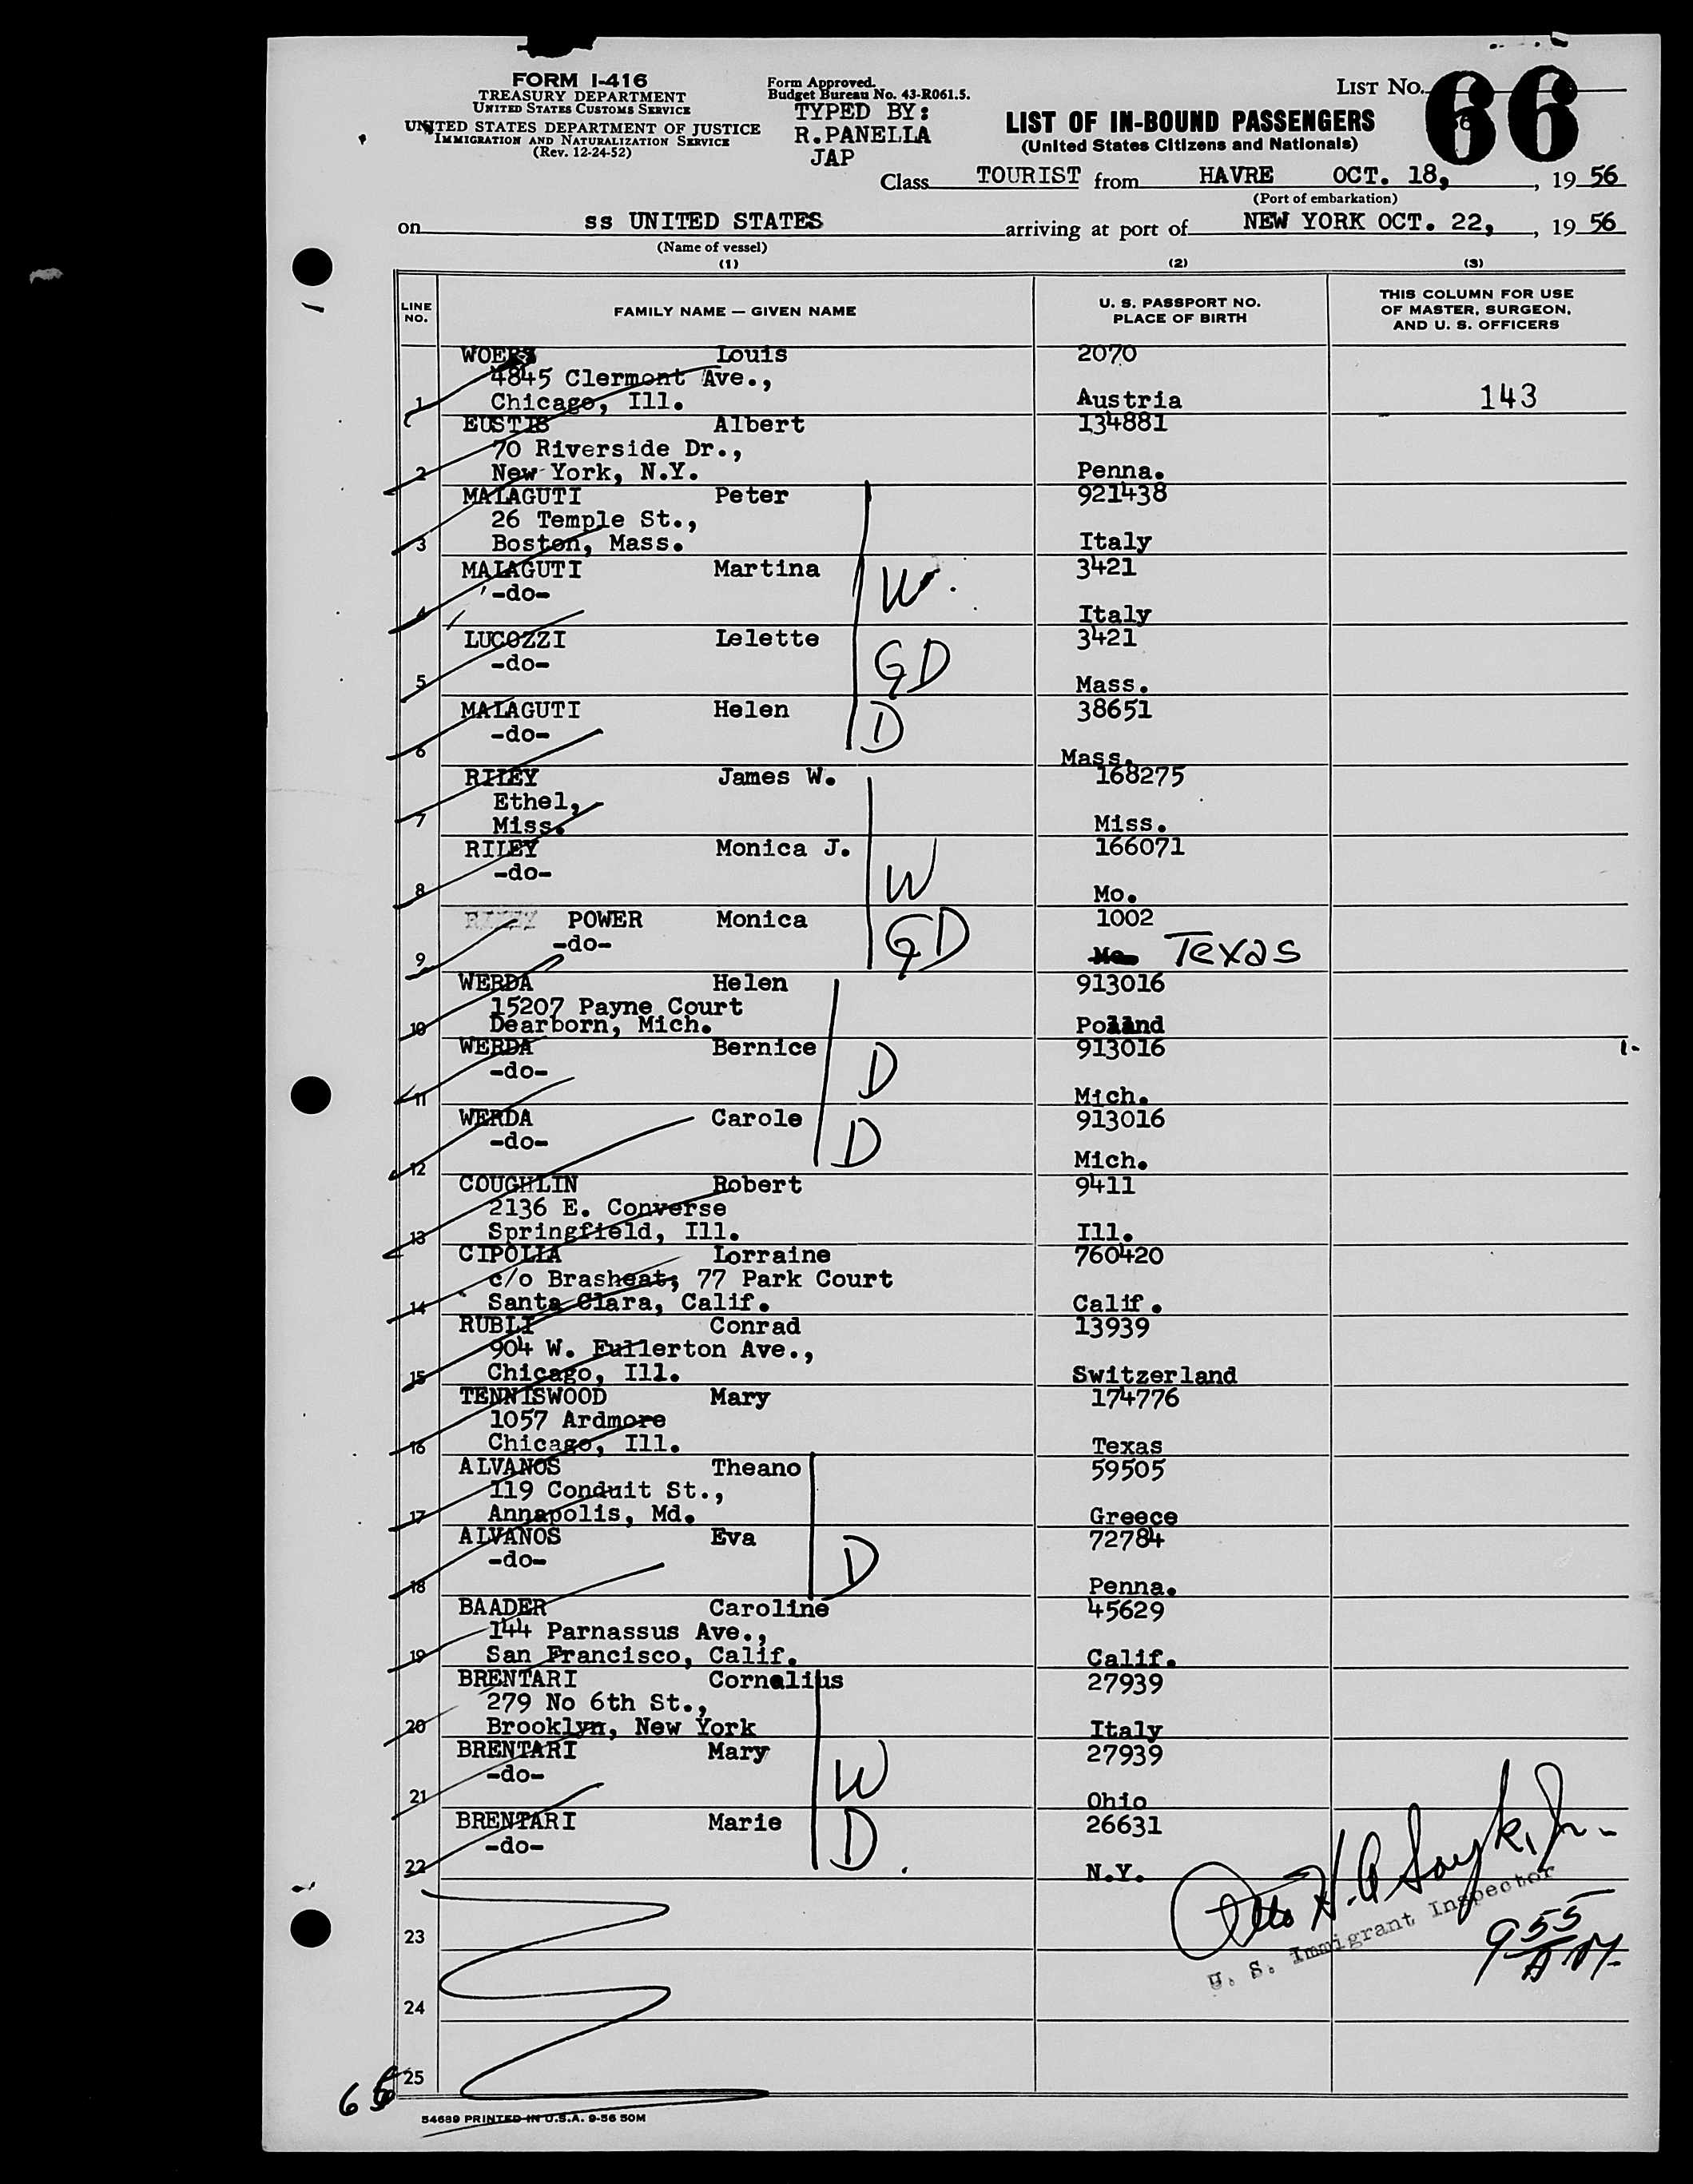 FORM I-416
TREASURY DEPARTMENT
UNITED STATES CUSTOMS SERVICE
UNITED STATES DEPARTMENT OF JUSTICE
IMMIGRATION AND NATURALIZATION SERVICE
(Rev. 12-24-52)
Form Approved.
Budget Bureau No. 43-R061.5.
TYPED BY:
R.PANELLA
JAP
LIST NO. 66
LIST OF IN-BOUND PASSENGERS
(United States Citizens and Nationals)
Class TOURIST from HAVRE OCT. 18, , 19 56
(Port of embarkation)
on ss UNITED STATES arriving at port of NEW YORK OCT. 22, , 19 56
(Name of vessel)
(1) (2) (3)
LINE NO. FAMILY NAME — GIVEN NAME U. S. PASSPORT NO. PLACE OF BIRTH THIS COLUMN FOR USE OF MASTER, SURGEON, AND U. S. OFFICERS
Louis 2070
4845 Clermont Ave.,
1 Chicago, Ill. Austria 143
EUSTIS Albert 134881
70 Riverside Dr.,
2 New York, N.Y. Penna.
MALAGUTI Peter 921438
26 Temple St.,
3 Boston, Mass. Italy
MALAGUTI Martina W. 3421
-do-
4 Italy
LUCOZZI Lelette GD 3421
-do-
5 Mass.
MALAGUTI Helen D 38651
-do-
6 Mass.
RILEY James W. 168275
Ethel,
7 Miss. Miss.
RILEY Monica J. W 166071
-do-
8 Mo.
RILEY POWER Monica GD 1002
-do-
9 Mo. Texas
WERDA Helen 913016
15207 Payne Court
10 Dearborn, Mich. Poland
WERDA Bernice D 913016
-do-
11 Mich.
WERDA Carole D 913016
-do-
12 Mich.
COUGHLIN Robert 9411
2136 E. Converse
13 Springfield, Ill. Ill.
CIPOLLA Lorraine 760420
c/o Brasheat, 77 Park Court
14 Santa Clara, Calif. Calif.
RUBLI Conrad 13939
904 W. Fullerton Ave.,
15 Chicago, Ill. Switzerland
TENNISWOOD Mary 174776
1057 Ardmore
16 Chicago, Ill. Texas
ALVANOS Theano 59505
119 Conduit St.,
17 Annapolis, Md. Greece
ALVANOS Eva D 72784
-do-
18 Penna.
BAADER Caroline 45629
144 Parnassus Ave.,
19 San Francisco, Calif. Calif.
BRENTARI Cornelius 27939
279 No 6th St.,
20 Brooklyn, New York Italy
BRENTARI Mary W 27939
-do-
21 Ohio
BRENTARI Marie D. 26631
-do-
22 N.Y.
Otto H.
U. S. Immigrant Inspector
23
9 55 A.M.
24
25
54689 PRINTED IN U.S.A. 9-56 50M